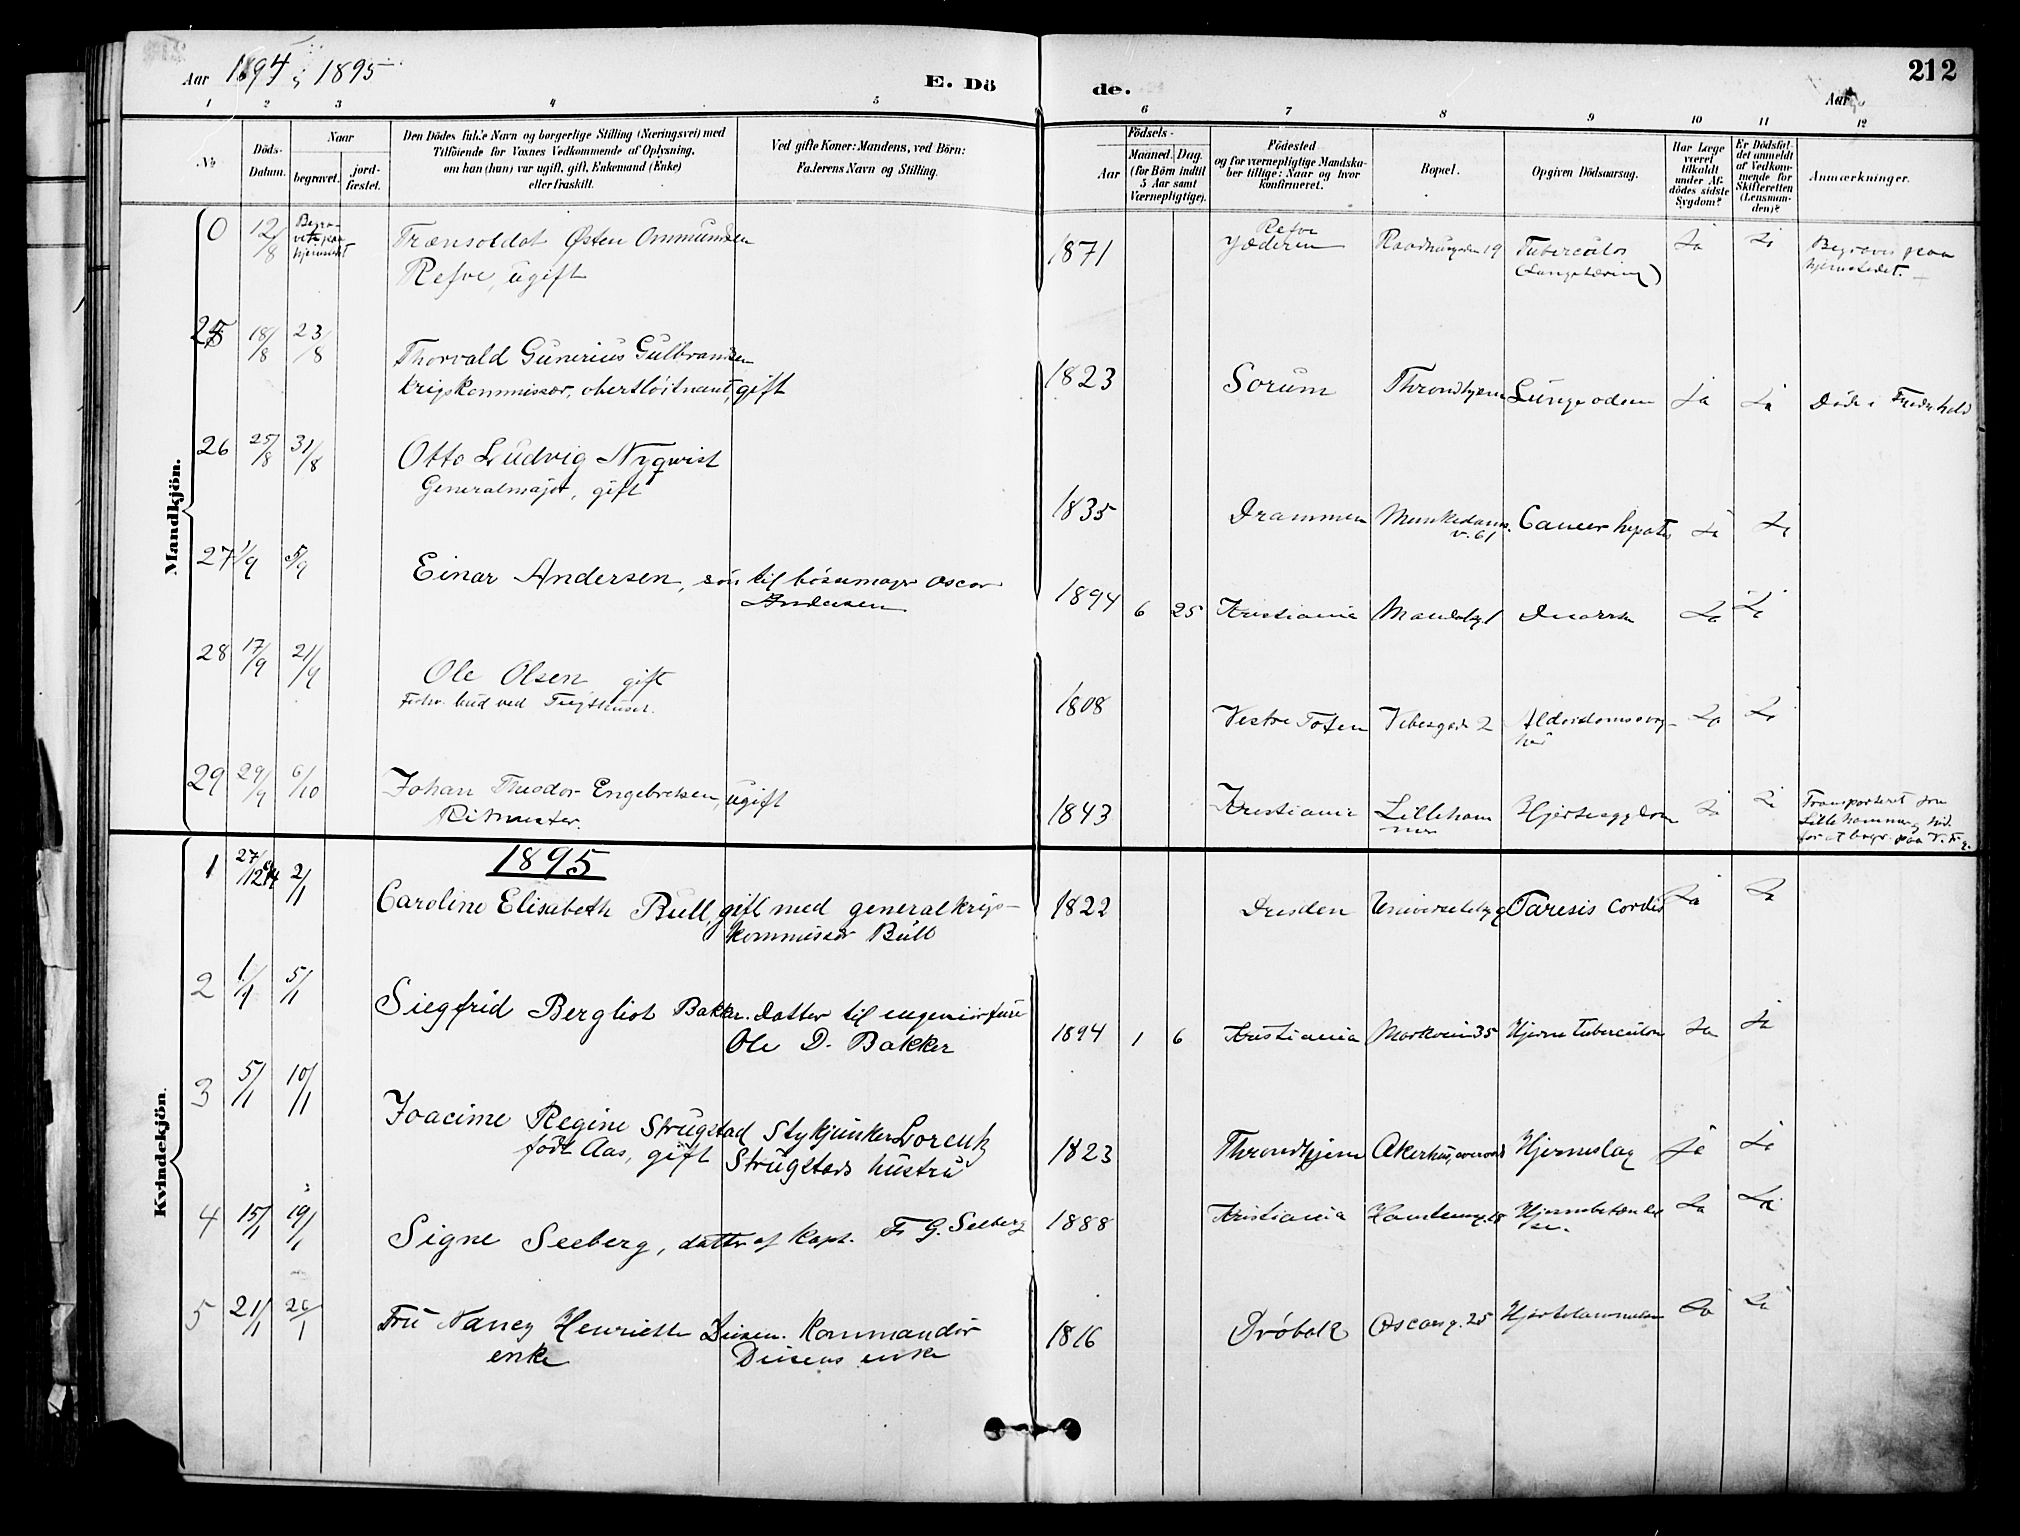 Aar 1894 ; 1895
E. Dö
de.
Aar
212
1 2 3 4 5 6 7 8 9 10 11 12
No
Döds-
Datum.
Naar
begravet.
jord-
fæstet.
Den Dödes fulde Navn og borgerlige Stilling (Næringsvei) med
Tilföiende for Voxnes Vedkommende af Oplysning,
om han (hun) var ugift, gift, Enkemand (Enke)
eller fraskilt.
Ved gifte Koner: Mandens, ved Börn:
Faderens Navn og Stilling.
Födsels-
Aar
Maaned. Dag.
(for Börn indtil
5 Aar samt
Værnepligtige).
Födested
og for værnepligtige Mandska-
ber tillige: Naar og hvor
konfirmeret.
Bopæl.
Opgiven Dödsaarsag.
Har Læge
været
tilkaldt
under Af-
dödes sidste
Sygdom?
Er Dödsfal-
det anmeldt
af Vedkom-
mende for
Skifteretten
(Lensman-
den)?
Anmærkninger.
Mandkjön.
0 12/8 Begra-
vet paa
hjemstedet
Trænsoldat Østen Ommundsen
Refve, ugift
1871 Refve
Jæderen Raadhusgaden 19 Tuberculos
(Lungetæring) Ja Ja Begraves paa
hjemstedet.
25 18/8 23/8 Thorvald Gunerius Gulbrandsen
krigskommissær, oberstløitnant, gift
1823 Sorum Throndhjem Lungeødem Ja Ja Døde i Fredrhald
26 25/8 31/8 Otto Ludvig Nyqvist
Generalmajor, gift
1835 Drammen Munkedams-
v. 61 Cancer hepatis Ja Ja
27 1/9 5/9 Einar Andersen, søn til bøssemager Oscar
Andersen
1894 6 25 Kristiania Diarrhe Ja Ja
28 17/9 21/9 Ole Olsen gift
bud ved Tøighuset.
1808 Vestre Toten Vibesgade 2 Alderdomssvag-
hed Ja Ja
29 29/9 6/10 Johan Theodor Engebretsen, ugift
Ritmester.
1843 Kristiania Lilleham
mer Hjertesygdom Ja Ja Transporteret fra
Lillehammer hid
for at begr. paa V. F. g.
Kvindekjön.
1895
1 27/12 94 2/1 Caroline Elisabeth Bull, gift med generalkrigs-
kommissær Bull
1822 Dresden Universitetsg 9 Paresis cordis Ja Ja
2 1/1 5/1 Siegfrid Bergliot Bakker. Datter til
Ole D. Bakker
1894 1 6 Kristiania Markveien 35 Hjerne Tuberculose Ja Ja
3 5/1 10/1 Joacime Regine Strugstad Stykjunker Lorentz
født Aas, gift Strugstads hustru
1823 Throndhjem Akershus, Hjerneslag Ja Ja
4 15/1 19/1 Signe Seeberg, datter af Kapt. F. G. Seeberg
1888 Kristiania Hjernebetændel
se. Ja Ja
5 21/1 26/1 Fru Nancy Henriette Diesen. Kommandør
enke Diesens enke
1816 Drøbak Oscarsg. 25 Hjertelammelse Ja Ja